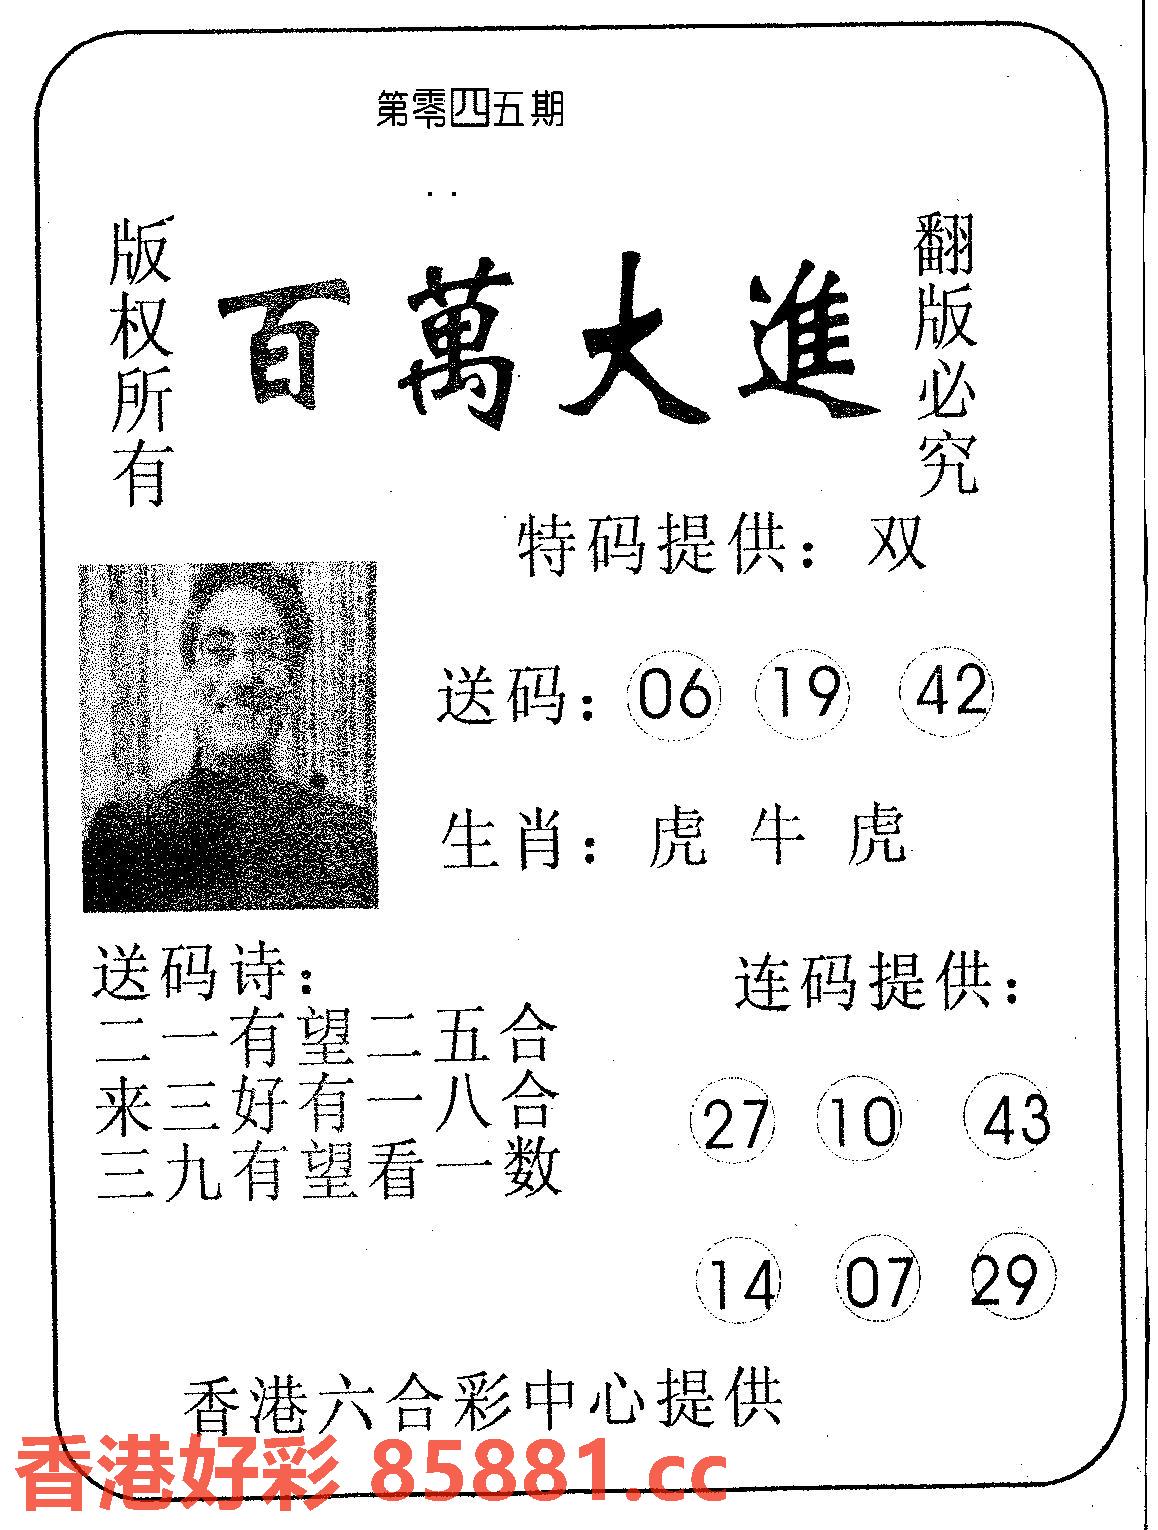 第零四五期
版权所有
百萬大進
翻版必究
特码提供：双
送码：06 19 42
生肖：虎 牛 虎
送码诗：
二一有望二五合
来三好有一八合
三九有望看一数
连码提供：
27 10 43
14 07 29
香港六合彩中心提供
香港好彩 85881.cc